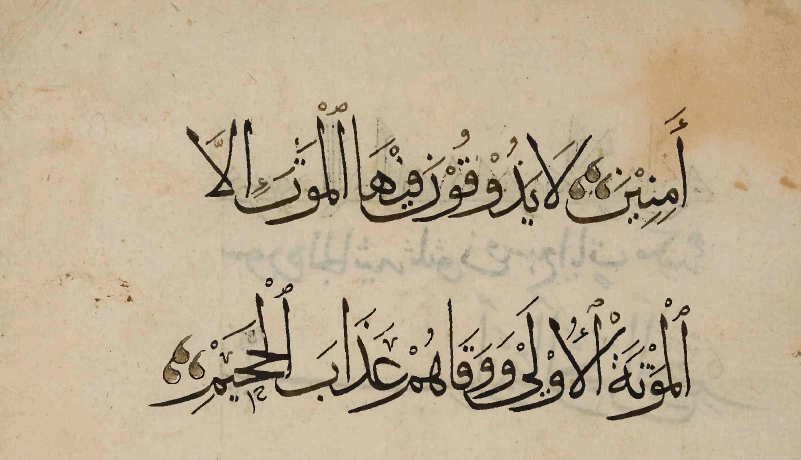 أَمِنِيْنَ لَا يَذُوْقُوْنَ فِيْهَا ٱلْمَوْتَ إِلَّا
ٱلْمَوْتَةَ ٱلْأُوْلَىْ وَوَقَاهُمْ عَذَابَ ٱلْجَحِيْمِ